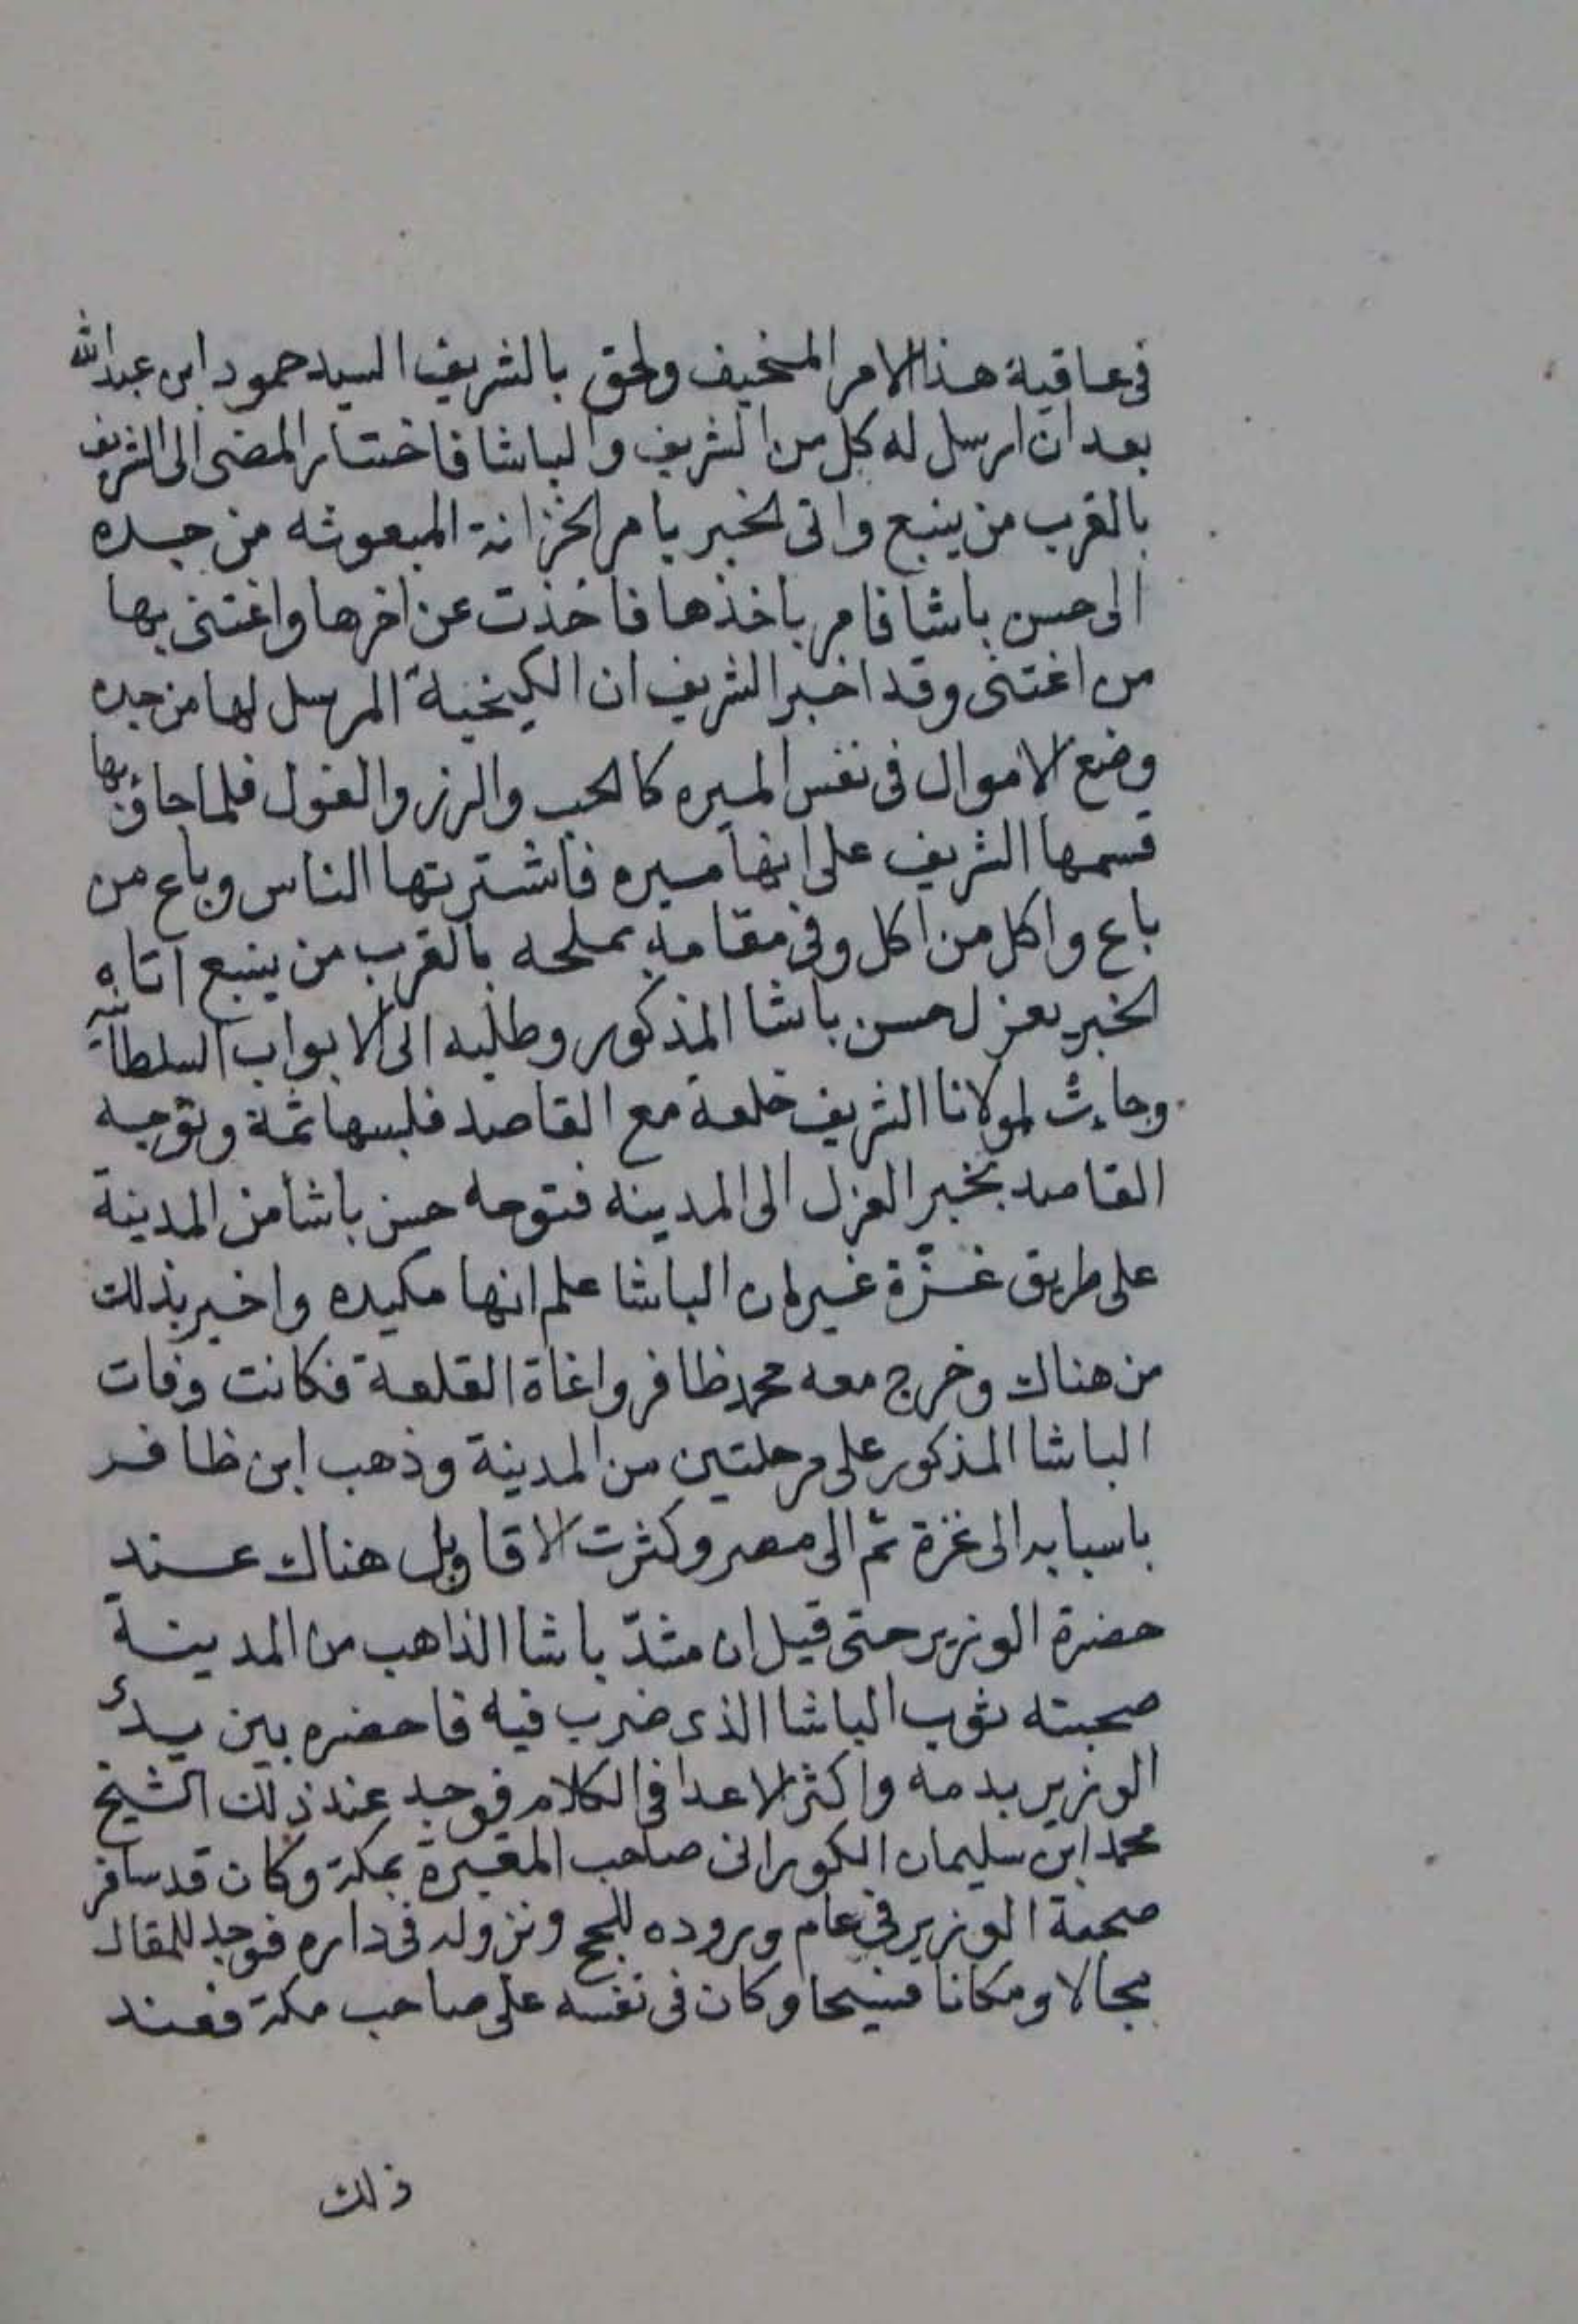 في عاقبة هذا الامر المخيف ولحق بالشريف السيد حمود ابن عبدالله
بعد ان ارسل له كل من الشريف والباشا فاختار المضى الى الشريف
بالقرب من ينبع واتى الخبر بامر الخزانة المبعوثه من جده
الى حسن باشا فامر باخذها فاخذت عن اخرها واغتنى بها
من اغتنى وقد اخبر الشريف ان الكيخية المرسل لها من جده
وضع الاموال في نفس الميره كالحب والرز والفول فلما جاؤ بها
قسمها الشريف على انها ميره فاشترتها الناس وباع من
باع واكل من اكل وفي مقامه بملحه بالقرب من ينبع اتاه
الخبر بعزل حسن باشا المذكور وطلبه الى الابواب السلطانية
وجاءت لمولانا الشريف خلعة مع القاصد فلبسها ثمة وتوجه
القاصد بخبر العزل الى المدينه فتوجه حسن باشا من المدينة
على طريق غزّة غير ان الباشا علم انها مكيده واخبر بذلك
من هناك وخرج معه محمد ظافر واغاة القلعة فكانت وفات
الباشا المذكور على مرحلتين من المدينة وذهب ابن ظافر
باسبابه الى غزة ثم الى مصر وكثرت الاقاويل هناك عند
حضرة الوزير حتى قيل ان مثدّ باشا الذاهب من المدينة
صحبته ثوب الباشا الذى ضرب فيه فاحضره بين يدى
الوزير بدمه واكثر الاعدا في الكلام فوجد عند ذلك الشيخ
محمد ابن سليمان الكورانى صاحب المقبرة بمكة وكان قد سافر
صحبة الوزير في عام وروده للحج ونزوله في داره فوجد للمقال
مجالا ومكانا فسيحا وكان في نفسه على صاحب مكة فعند
ذلك